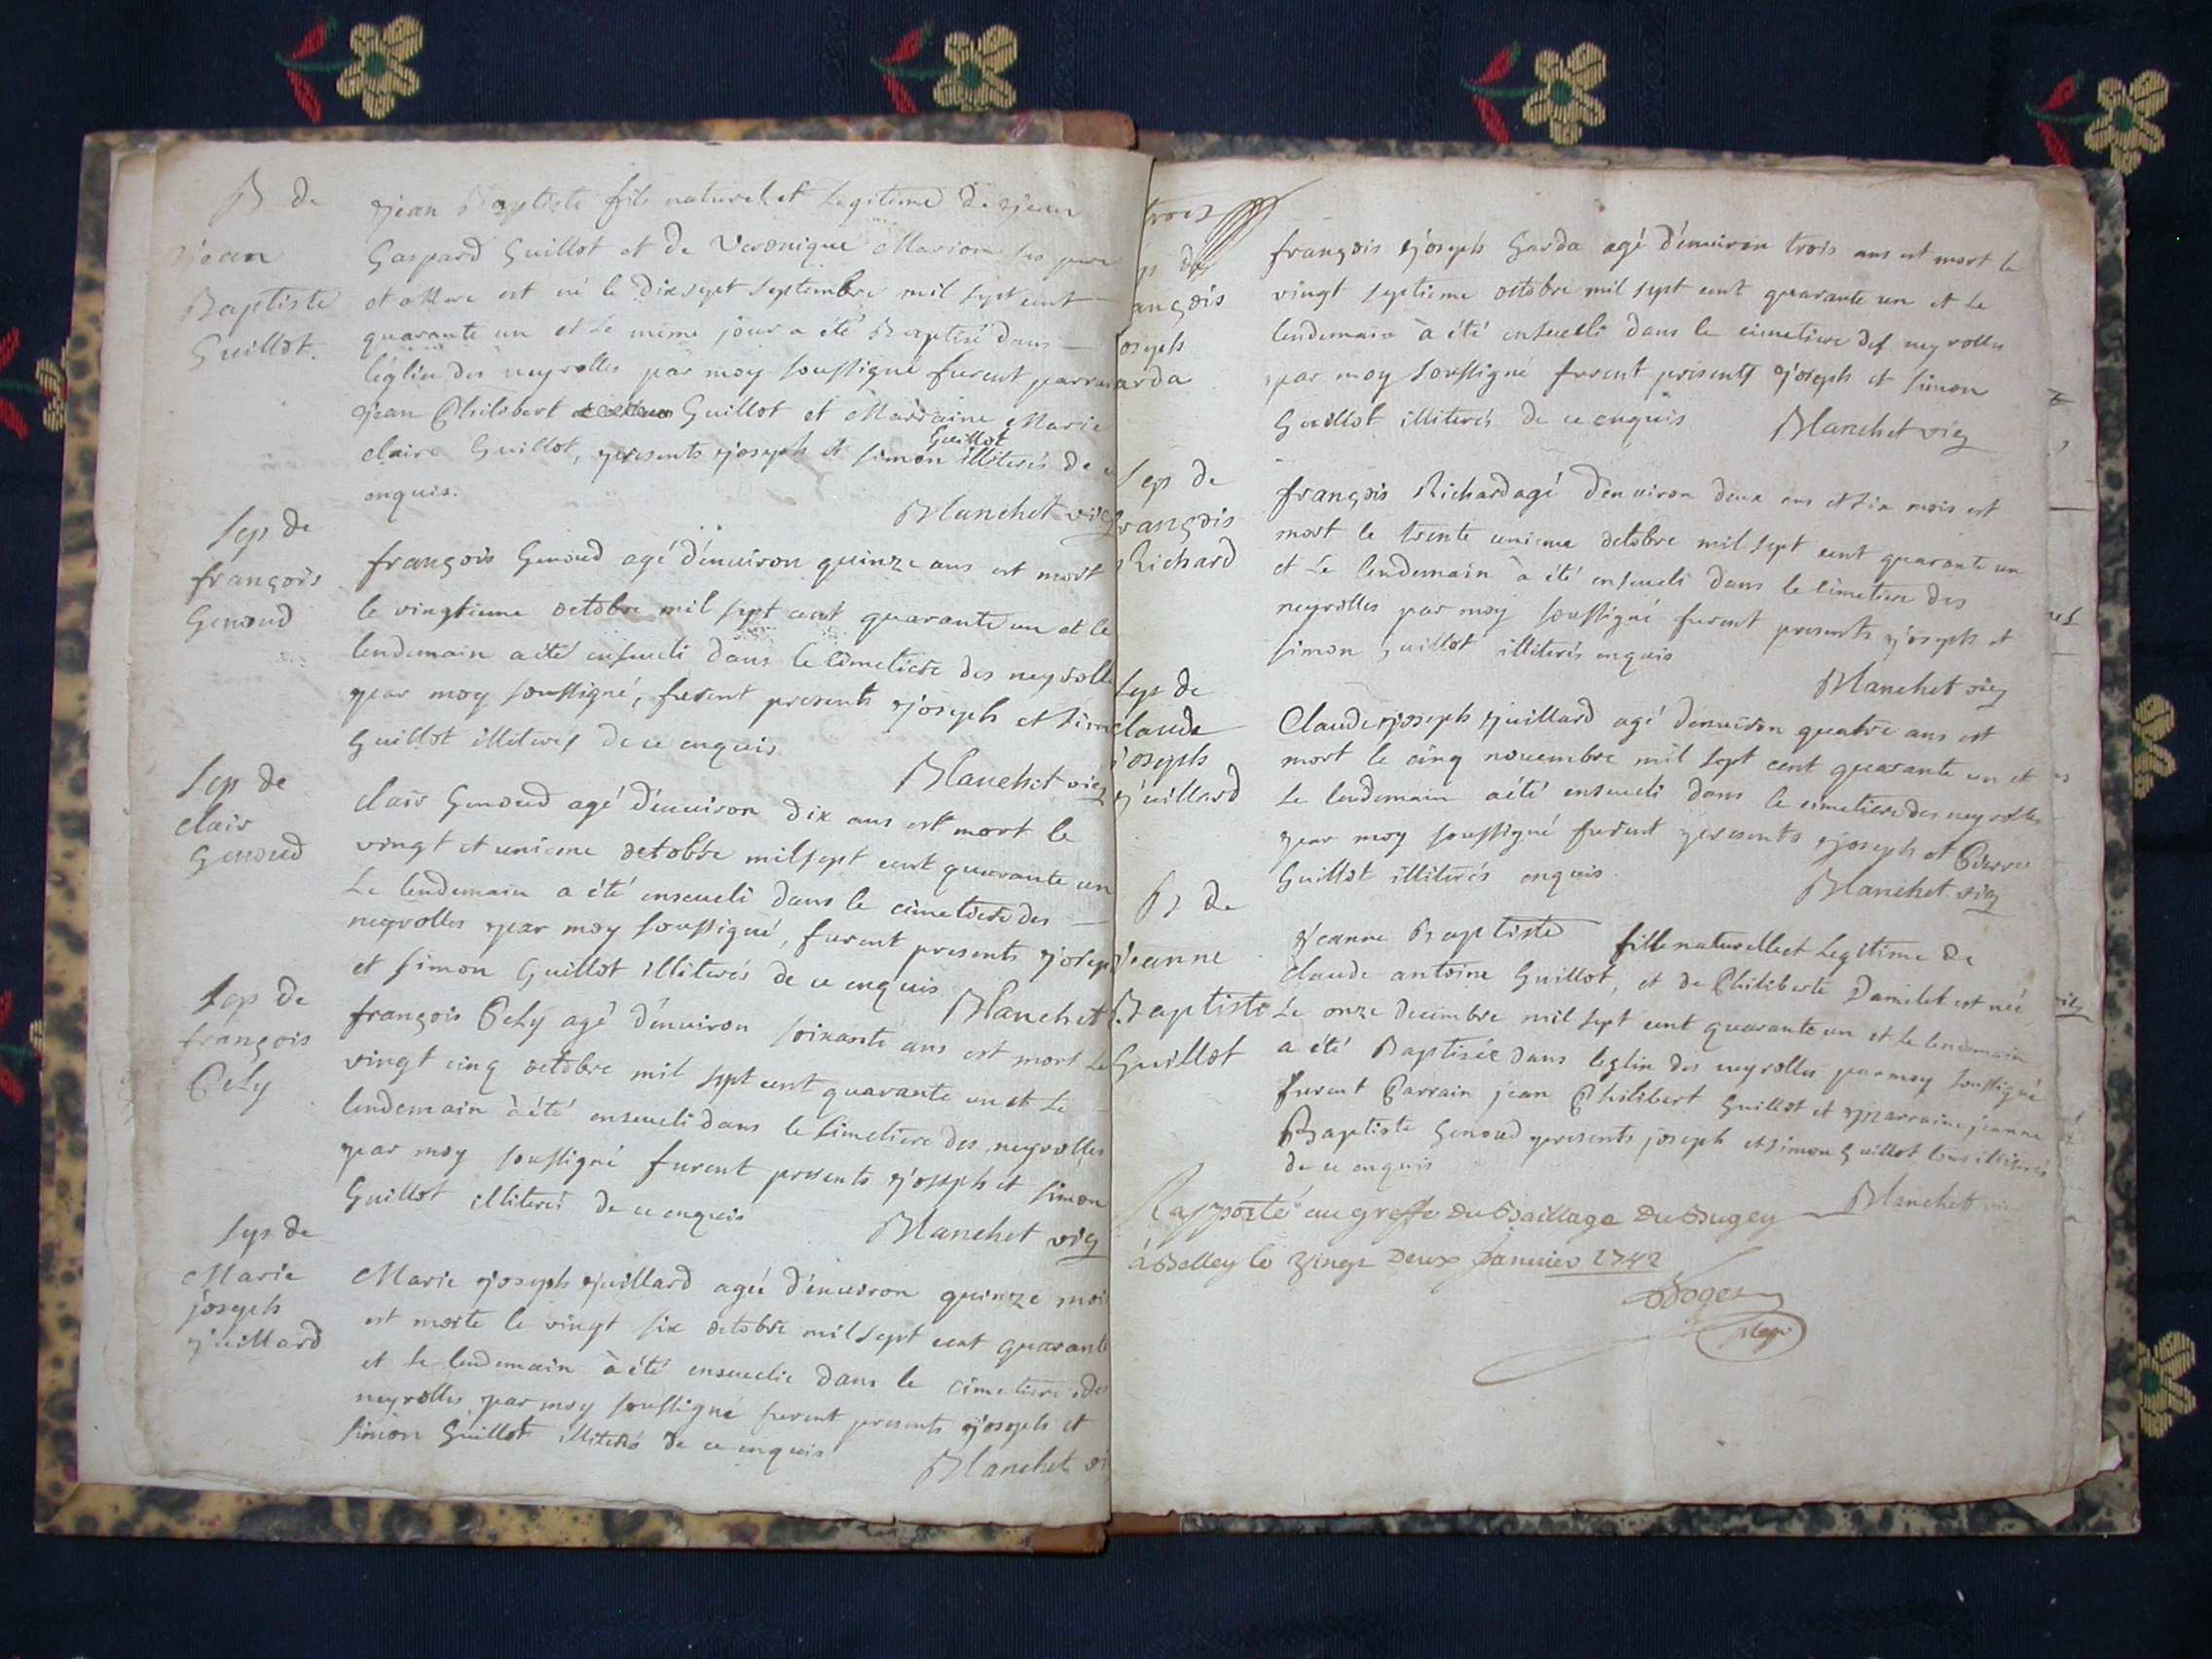 B de
jean
Baptiste
Guillot.
jean Baptiste fils naturel et Legitime de jean
Gaspard Guillot et de Veronique Marion ses pere
et Mere est né le dixsept septembre mil sept cent
quarante un et Le même jour a été Baptisé dans
léglise des neyrolles par moy soussigné furent parrain
jean Philibert Guillot et Marraine Marie
claire Guillot, presents joseph et simon Guillot illiterés de ce
enquis.
Blanchet vic
Sep de
françois
Genoud
françois Genoud agé d'enuiron quinze ans est mort
le vingtieme octobre mil sept cent quarante un et le
lendemain a été enseueli dans le cimetiere des neyrolle
par moy soussigné, furent presents joseph et simon
Guillot illiterés de ce enquis
Blanchet vic
Sep de
clair
Genoud
clair Genoud agé d'enuiron dix ans est mort le
vingt et unieme octobre mil sept cent quarante un
Le lendemain a été enseueli dans le cimetiere des
neyrolles par moy soussigné, furent presents joseph
et simon Guillot illiterés de ce enquis
Blanchet
Sep de
françois
Pely
françois Pely agé d'enuiron soixante ans est mort Le
vingt cinq octobre mil sept cent quarante un et Le
lendemain à été enseueli dans le simetiere des neyrolles
par moy soussigné furent presents joseph et simon
Guillot illiterés de ce enquis
Blanchet vic
Sep de
Marie
joseph
juillard
Marie joseph juillard agée d'enuiron quinze moi
est morte le vingt six octobre mil sept cent quarante
et Le lendemain à été enseuelie dans le cimetiere des
neyrolles par moy soussigné furent presents joseph et
simon Guillot illiterés de ce enquis
Blanchet vi
trois
p de
ançois
oseph
arda
françois joseph Garda agé d'enuiron trois ans est mort le
vingt septieme octobre mil sept cent quarante un et Le
lendemain à été enseueli dans le cimetiere des neyrolles
par moy soussigné furent presents joseph et simon
Guillot illiterés de ce enquis
Blanchet vic
Sep de
françois
Richard
françois Richard agé d'enuiron deux ans et six mois est
mort le trente unieme octobre mil sept cent quarante un
et Le lendemain à été enseueli dans le simetiere des
neyrolles par moy soussigné furent presents joseph et
simon guillot illiterés enquis
Blanchet vic
Sep de
claude
joseph
juillard
Claude joseph juillard agé denuiron quatre ans est
mort le cinq nouembre mil sept cent quarante un et
Le lendemain a été enseueli dans le cimetiere des neyrolles
par moy soussigné furent presents joseph et Pierre
Guillot illiterés enquis.
Blanchet vic
B de
jeanne
Baptiste
Guillot
jeanne Baptiste fille naturelle et Legitime de
claude antoine Guillot, et de Philiberte Damilet est née
Le onze decembre mil sept cent quarante un et Le lendemain
a été Baptisée dans leglise des neyrolles par moy soussigné
furent Parrain jean Philibert Guillot et marraine jeanne
Baptiste Genoud presents joseph et simon guillot tous illiterés
de ce enquis
Blanchet vic
Rapporté au greffe Du Baillage Du Bugey
à Belley le Vingt Deux Janvier 1742